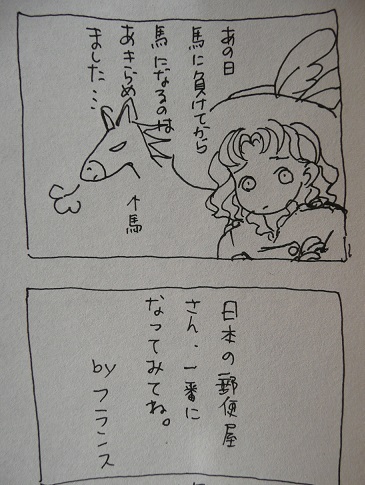 あの日
馬に負けてから
馬になるのは
あきらめ
ました…
↑馬
日本の郵便屋
さん、一番に
なってみてね。
by フランス